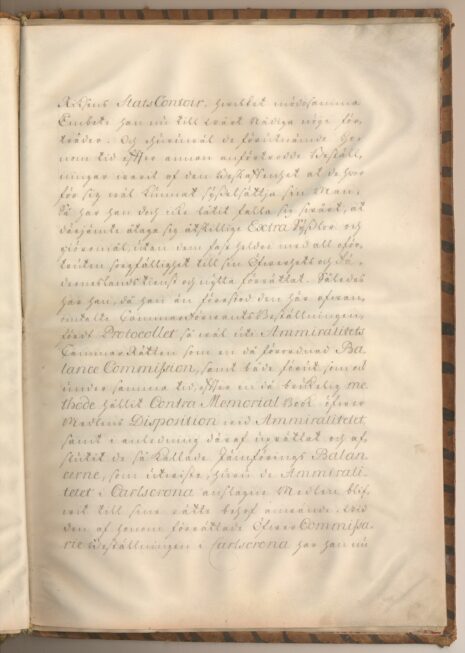 Riksens StatsContoir, hwilket mödosamma
Embete han nu till wårt Nådiga nöje för,
träder. Och ehuruwäl de förutnämde Ho,
nom tid efter annan anförtrodde Beställ,
ningar warit af den beskaffenhet at de hwar
för sig wäl kunnat sysselsättja sin Man,
Så har han doch icke låtit falla sig swårt, at
derjämte åtaga sig åtskillige Extra Sysslor och
giöromål, utan dem fast heldre med all oför,
truten sorgfällighet till sin Öfwerhets och Fä,
derneslandets tienst och nytta förrättat. Således
har han, då han än förestod den här ofwan,
omtalte Cammarförwants Beställningen,
fördt Protocollet så wäl uti Ammiralitets
CammarRätten som en då förordnad Ba,
lance Commission, samt både förut som ock
under samma tid, efter en då brukelig me,
thode hållit Contra Memorial Bok öfwer
Medlens Disposition wid Ammiralitetet
samt i anledning däraf uprättat och af,
slutit de så kallade Jämförings Balan,
cerne, som utwiste, huru de Ammirali,
tetet i Carlscrona anslagne Medlen blif,
wit till sine rätte behof använde. Wid
den af honom förrättade ÖfwerCommissa,
rie Beställningen i Carlscrona har han nu